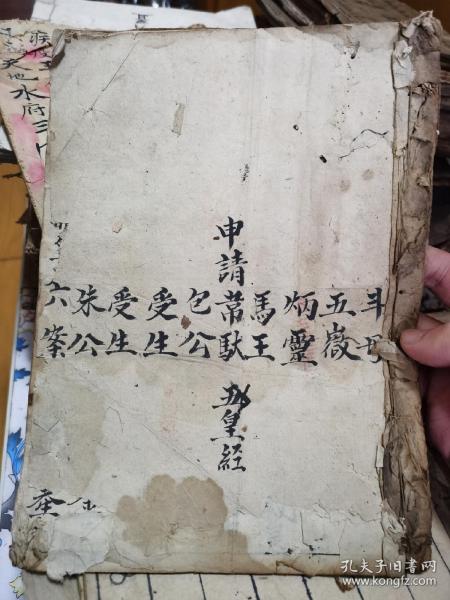 斗母
五嶽
炳靈
馬王
申請
馱
皇経
包公
受生
受生
朱公
六案
天地水府三
孔夫子旧书网
www.kongfz.com